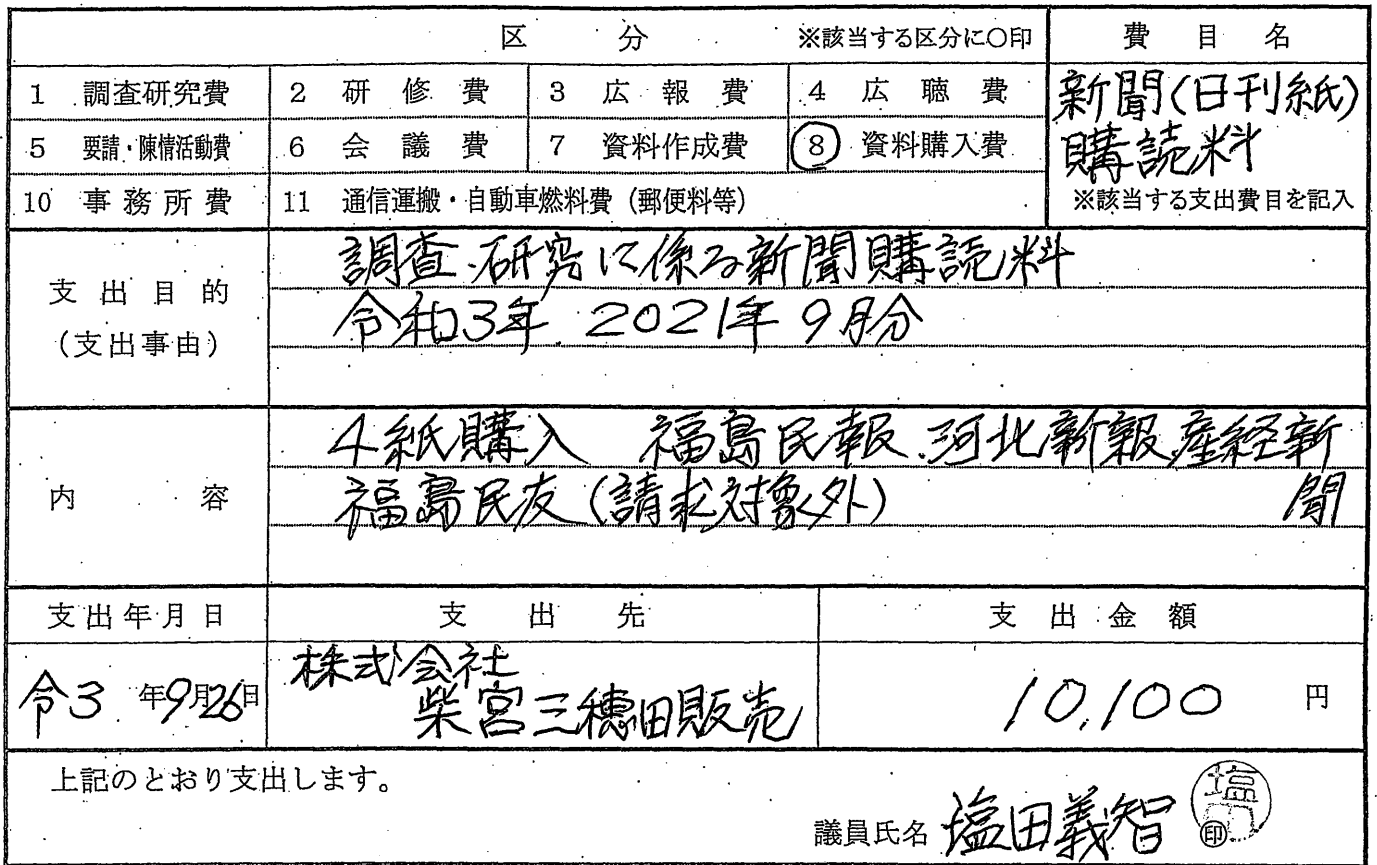 区 分 ※該当する区分に〇印 費 目 名
1 調査研究費 2 研 修 費 3 広 報 費 4 広 聴 費 新聞(日刊紙)
5 要請・陳情活動費 6 会 議 費 7 資料作成費 8 資料購入費 購読料
10 事 務 所 費 11 通信運搬・自動車燃料費 (郵便料等) ※該当する支出費目を記入
支 出 目 的 調査、研究に係る新聞購読料
(支出事由) 令和3年 2021年 9月分
4紙購入 福島民報、河北新報、産経新
内 容 福島民友(請求対象外) 聞
支出年月日 支 出 先 支 出 金 額
令3 年9月26日 株式会社
柴宮三穂田販売 10,100 円
上記のとおり支出します。
議員氏名 塩田義智 印
塩田